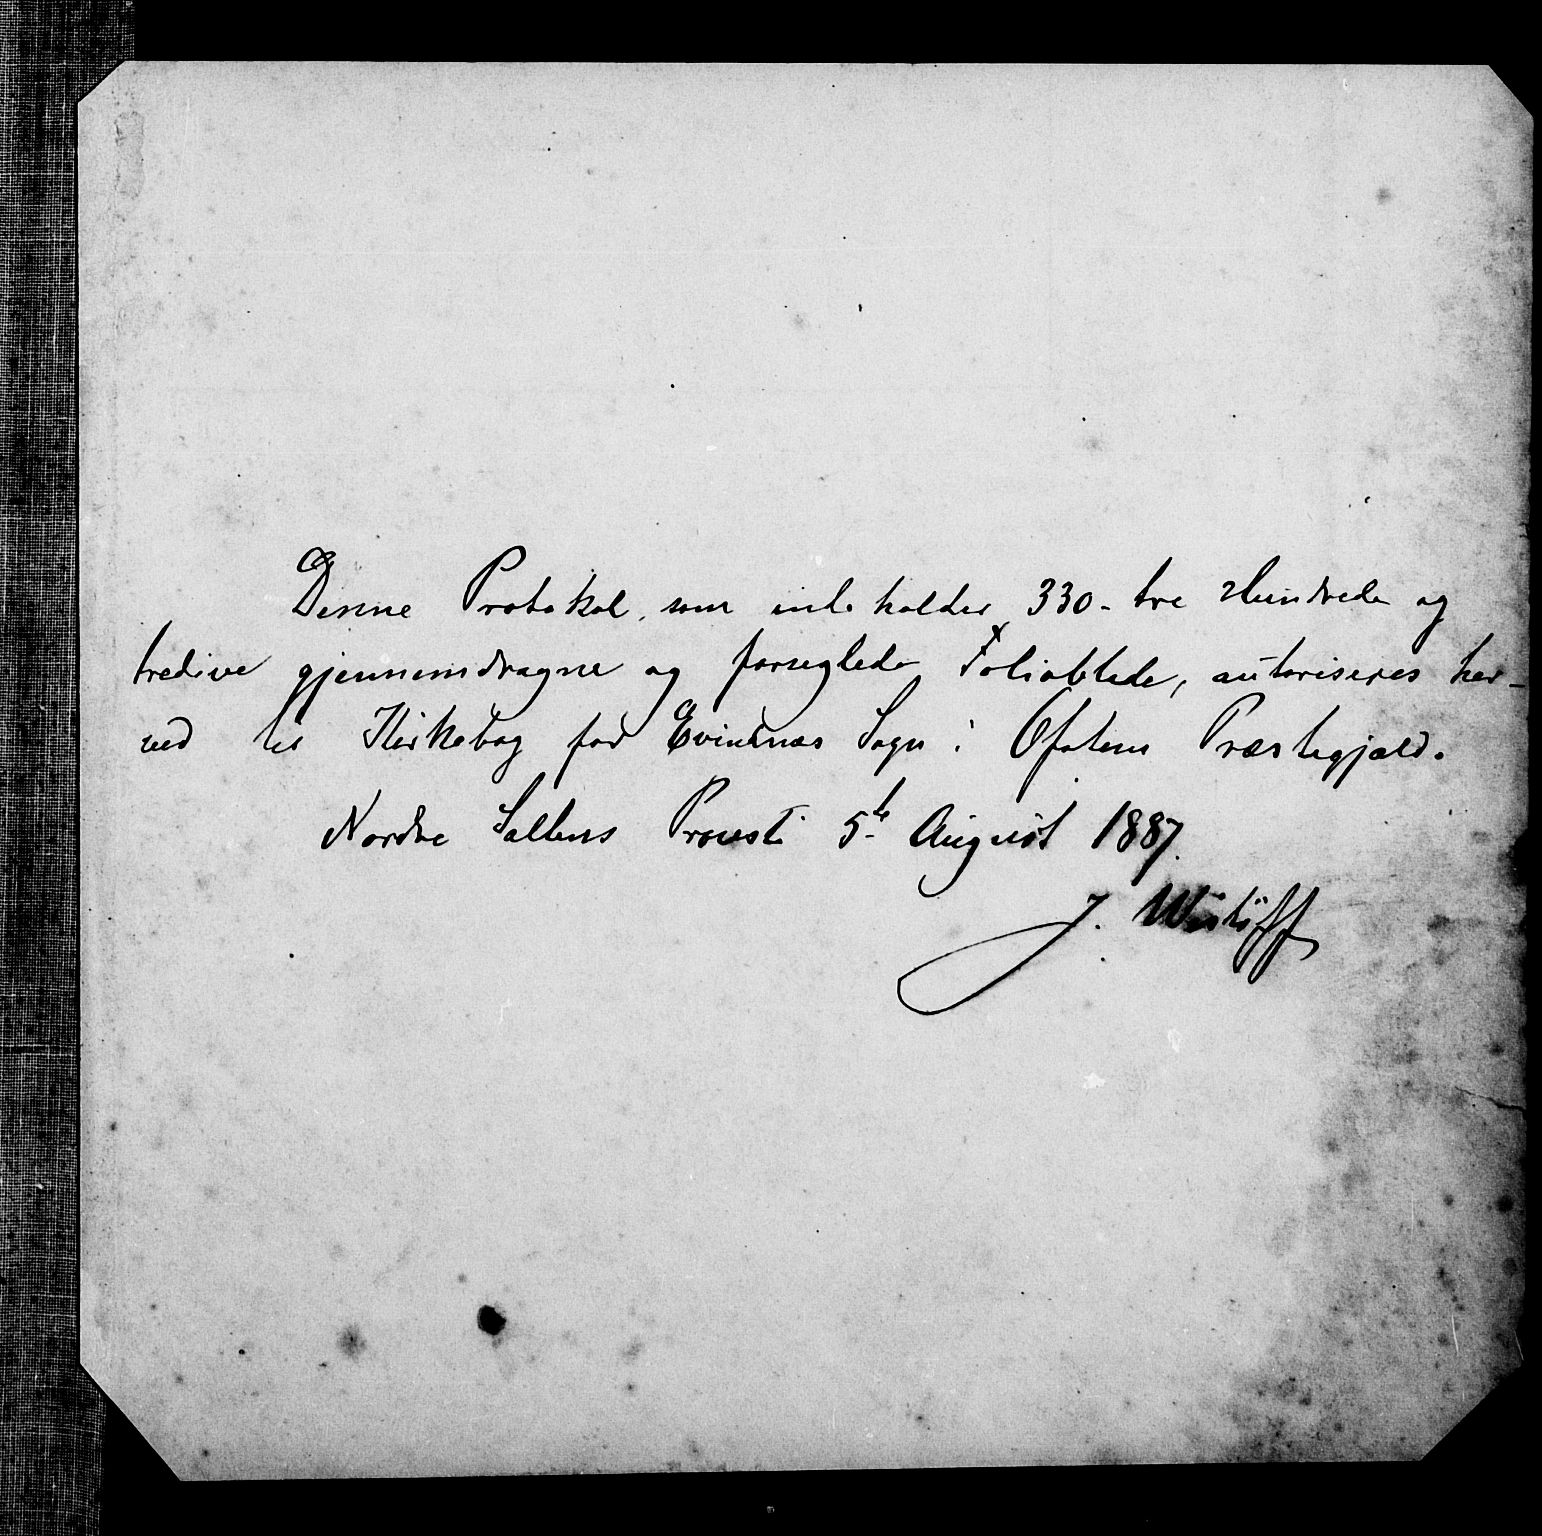 Denne Protokol, som indeholder 330 - tre Hundrede og
tredive gjennemdragne og forseglede Folioblade, autoriseres her-
ved til Kirkebog for Evindnæs Sogn i Ofotens Præstegjæld.
Nordre Saltens Provsti 5te August 1887.
J.